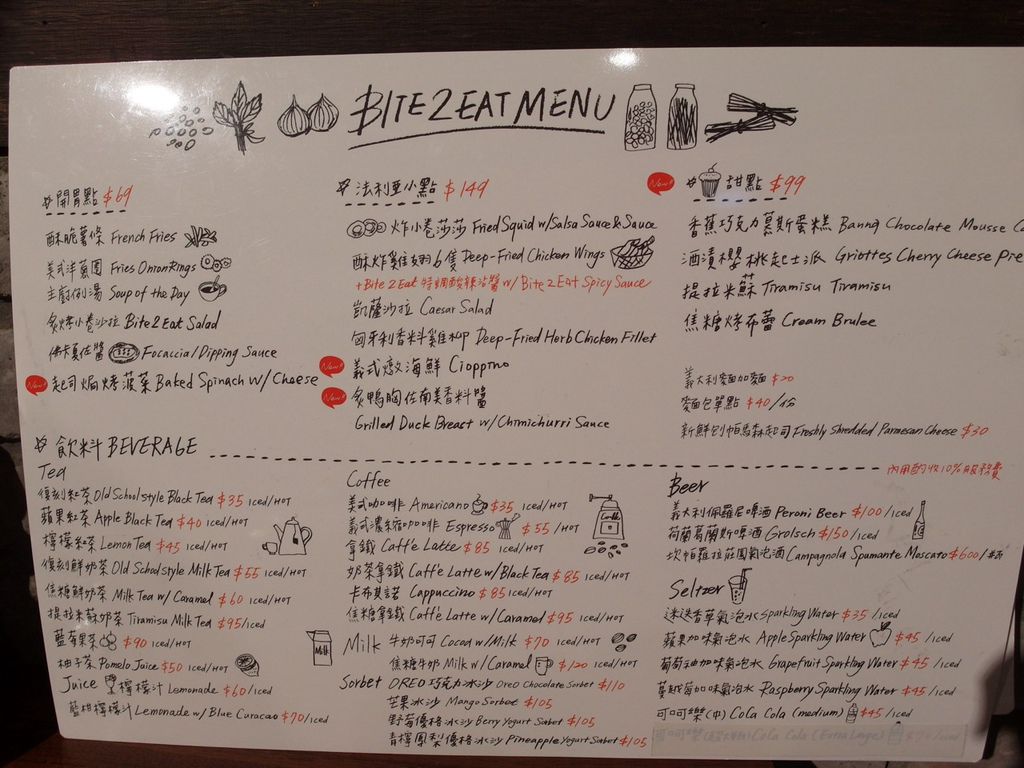 BITE2EAT MENU
開胃點 $69
酥脆薯條 French Fries
美式洋蔥圈 Fries Onion Rings
主廚例湯 Soup of the Day
炙烤小卷沙拉 Bite2Eat Salad
佛卡夏佐醬 Focaccia/Dipping Sauce
New! 起司焗烤菠菜 Baked Spinach w/Cheese
法利亞小點 $149
炸小卷莎莎 Fried Squid w/Salsa Sauce & Sauce
酥炸雞翅6隻 Deep-Fried Chicken Wings
+Bite2Eat 特調酸辣沾醬 w/Bite2Eat Spicy Sauce
凱薩沙拉 Caesar Salad
匈牙利香料雞柳 Deep-Fried Herb Chicken Fillet
New! 義式燉海鮮 Cioppino
New! 炙鴨胸佐南美香料醬
Grilled Duck Breast w/Chimichurri Sauce
New! 甜點 $99
香蕉巧克力慕斯蛋糕 Banna Chocolate Mousse
酒漬櫻桃起士派 Griottes Cherry Cheese Pie
提拉米蘇 Tiramisu Tiramisu
焦糖烤布蕾 Cream Brulee
義大利麵加麵 $20
麵包單點 $40/份
新鮮刨帕馬森起司 Freshly Shredded Parmesan Cheese $30
飲料 BEVERAGE
內用酌收10%服務費
Tea
復刻紅茶 Old School style Black Tea $35 iced/HOT
蘋果紅茶 Apple Black Tea $40 iced/HOT
檸檬紅茶 Lemon Tea $45 iced/HOT
復刻鮮奶茶 Old School style Milk Tea $55 iced/HOT
焦糖鮮奶茶 Milk Tea w/Caramel $60 iced/HOT
提拉米蘇奶茶 Tiramisu Milk Tea $95/iced
藍莓果茶 $90 iced/HOT
柚子茶 Pomelo Juice $50 iced/HOT
Juice 檸檬汁 Lemonade $60/iced
藍柑檸檬汁 Lemonade w/Blue Curacao $70/iced
Coffee
美式咖啡 Americano $35 iced/HOT
義式濃縮咖啡 Espresso $55/HOT
拿鐵 Caffe Latte $85 iced/HOT
奶茶拿鐵 Caffe Latte w/Black Tea $85 iced/HOT
卡布其諾 Cappuccino $85 iced/HOT
焦糖拿鐵 Caffe Latte w/Caramel $95 iced/HOT
Milk 牛奶可可 Cocoa w/Milk $70 iced/HOT
焦糖牛奶 Milk w/Caramel $120 iced/HOT
Sorbet OREO巧克力冰沙 Oreo Chocolate Sorbet $110
芒果冰沙 Mango Sorbet $105
野莓優格冰沙 Berry Yogurt Sorbet $105
青檸鳳梨優格冰沙 Pineapple Yogurt Sorbet $105
Beer
義大利佩羅尼啤酒 Peroni Beer $100/iced
荷蘭葛蘭斯啤酒 Grolsch $150/iced
坎帕羅拉莊園氣泡酒 Campagnola Spumante Moscato $600/
Seltzer
迷迭香草氣泡水 Sparkling Water $35/iced
蘋果加味氣泡水 Apple Sparkling Water $45/iced
葡萄柚加味氣泡水 Grapefruit Sparkling Water $45/iced
蔓越莓加味氣泡水 Raspberry Sparkling Water $45/iced
可口可樂(中) Coca Cola (medium) $45/iced
Coca Cola (Extra Large) $70/iced